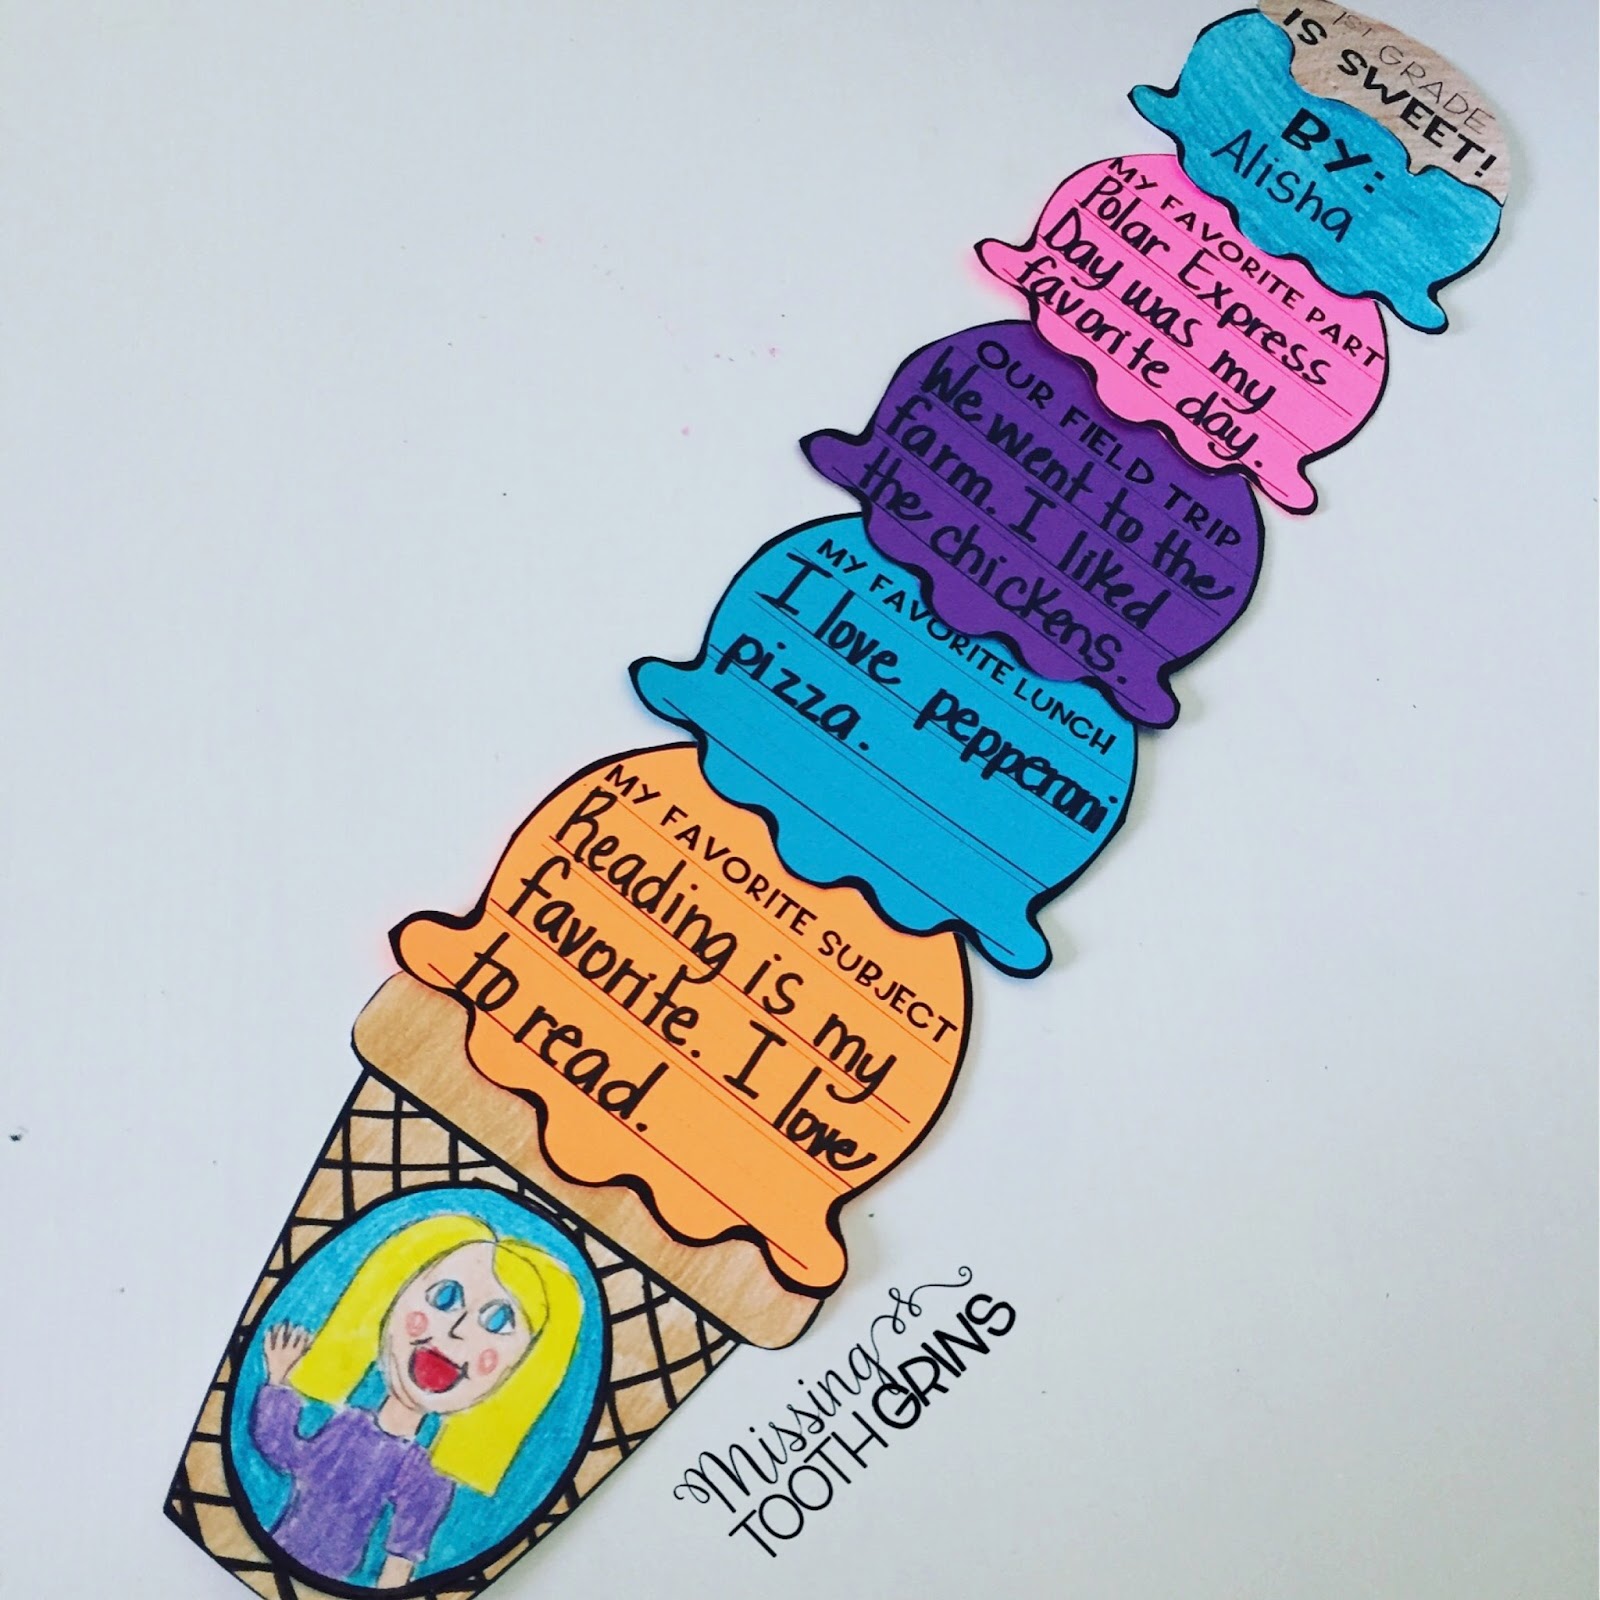 1ST GRADE
IS SWEET!
BY:
Alisha
MY FAVORITE PART
Polar Express
Day was my
favorite day.
OUR FIELD TRIP
We went to the
farm. I liked
the chickens.
MY FAVORITE LUNCH
I love pepperoni
pizza.
MY FAVORITE SUBJECT
Reading is my
favorite. I love
to read.
Missing
TOOTH GRINS